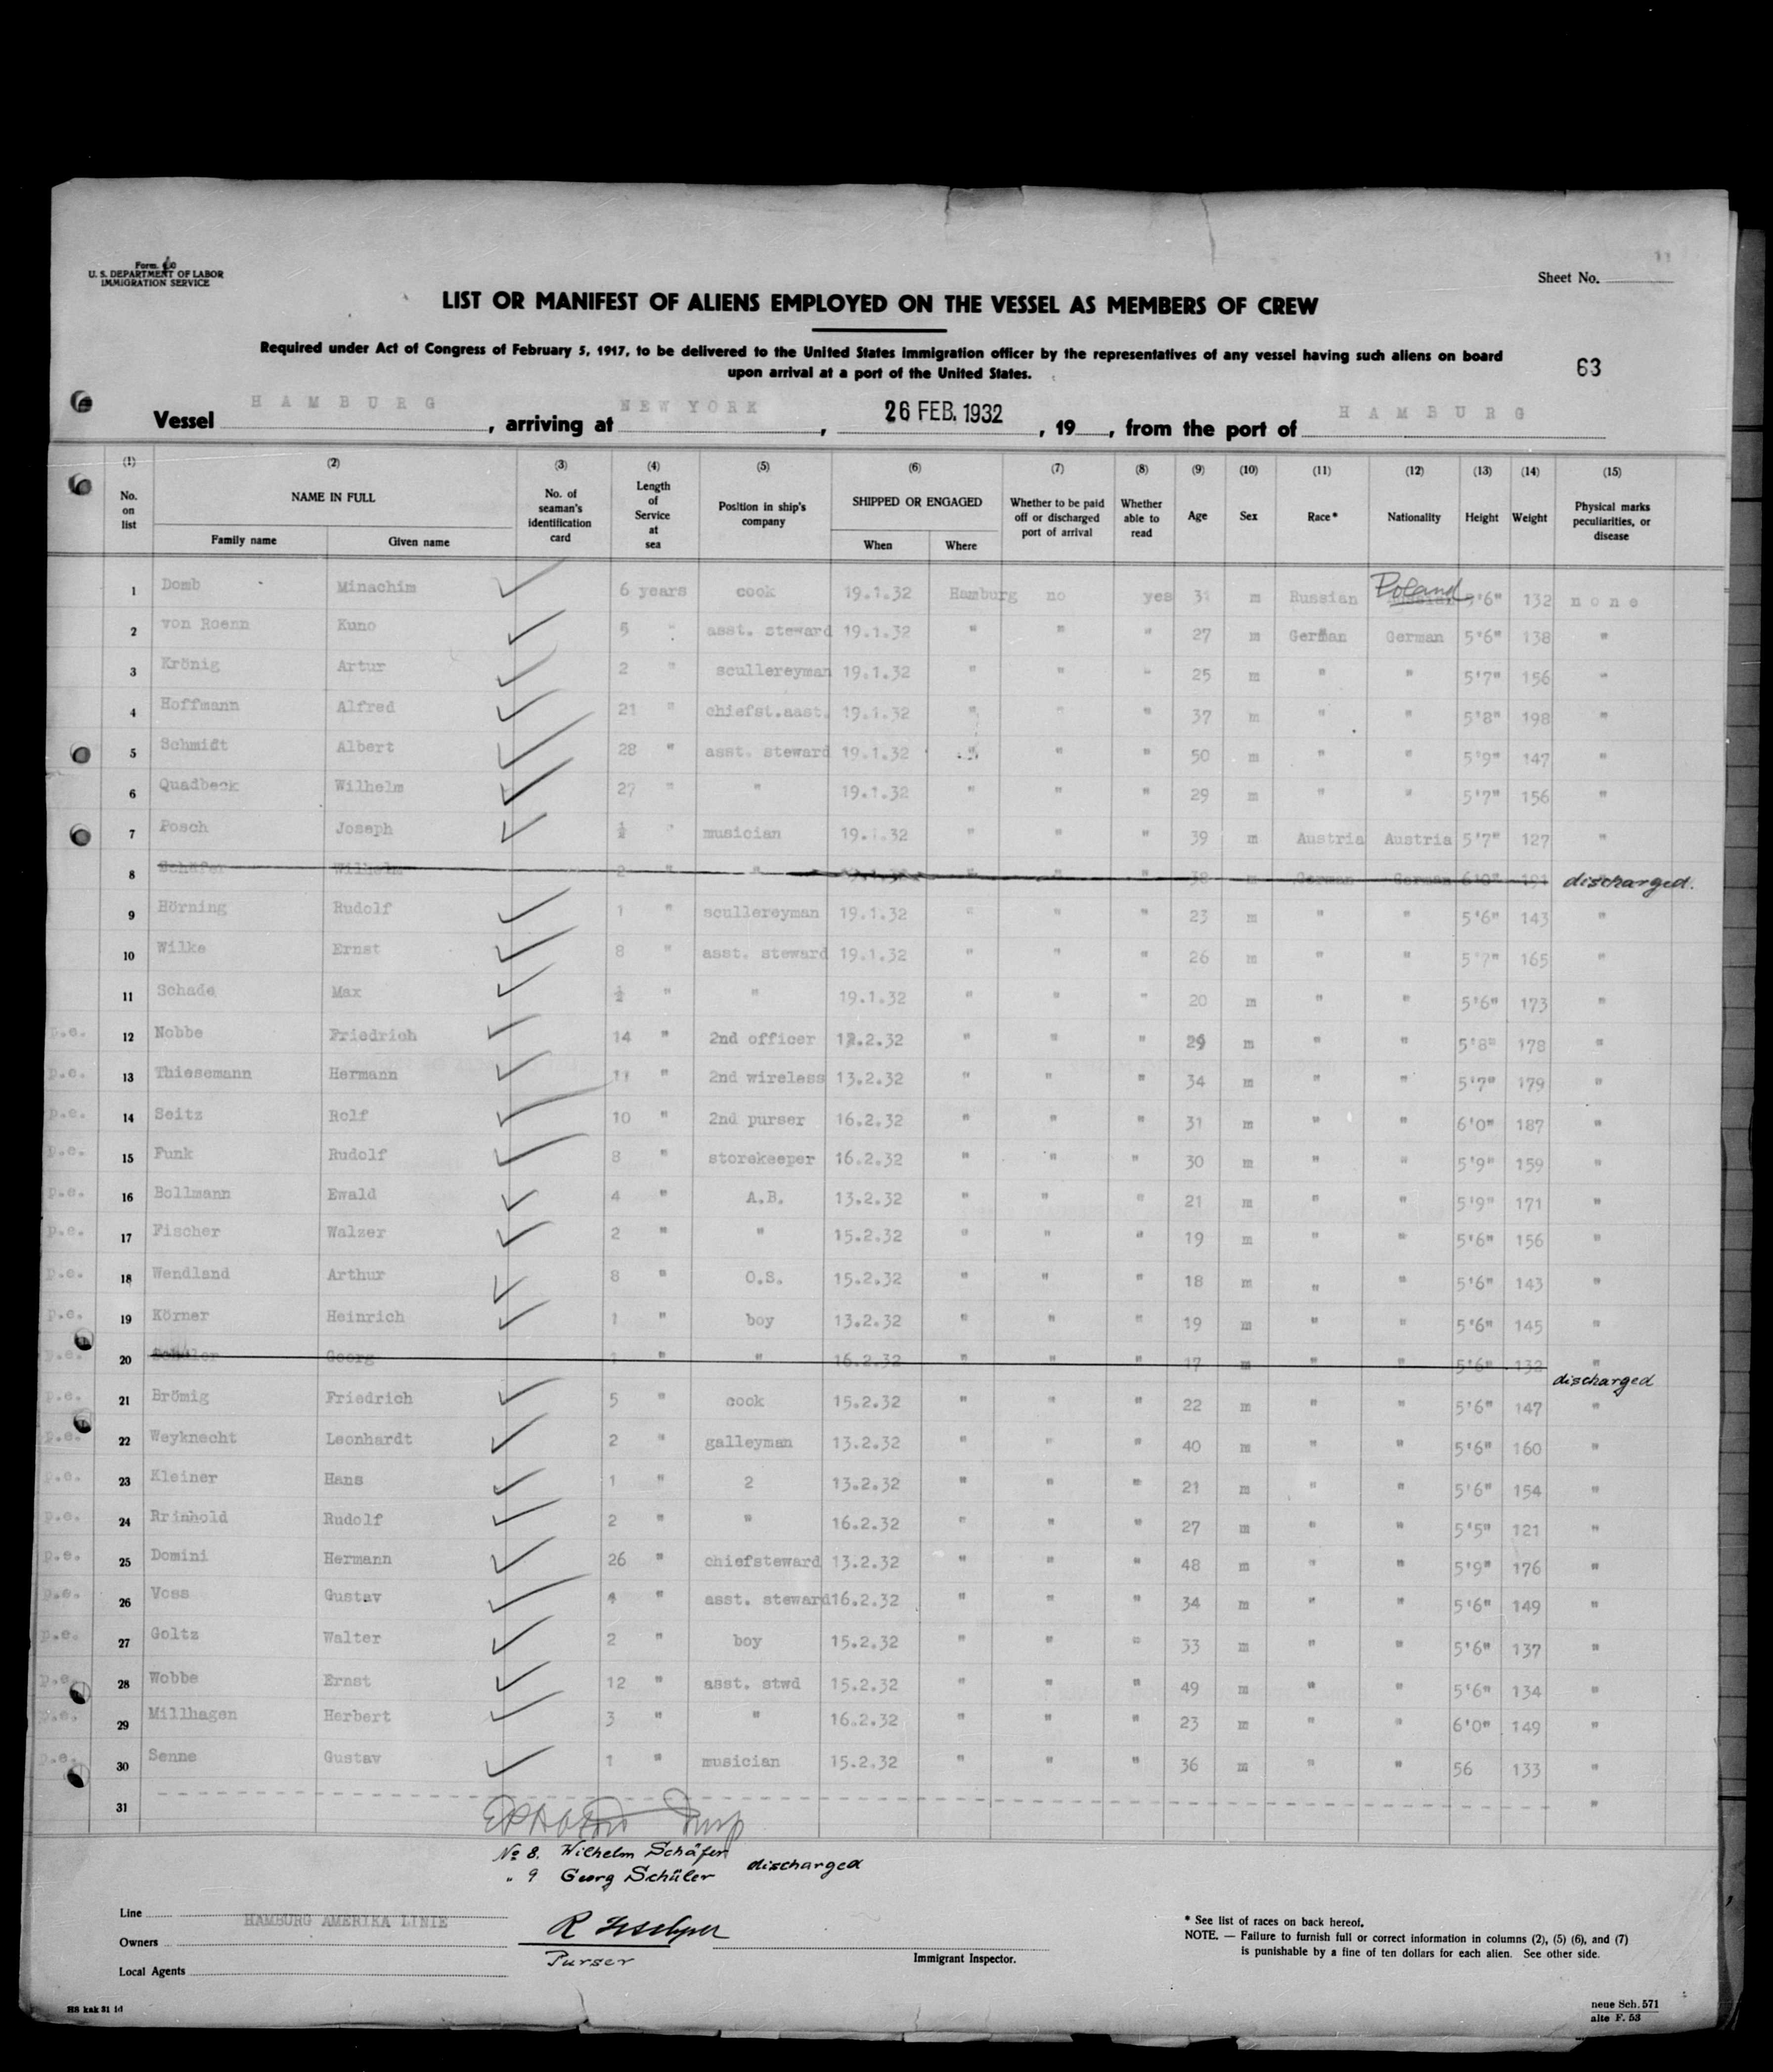 Form 
U. S. DEPARTMENT OF LABOR
IMMIGRATION SERVICE
Sheet No. 11
LIST OR MANIFEST OF ALIENS EMPLOYED ON THE VESSEL AS MEMBERS OF CREW
Required under Act of Congress of February 5, 1917, to be delivered to the United States immigration officer by the representatives of any vessel having such aliens on board
upon arrival at a port of the United States.
63
Vessel HAMBURG, arriving at NEW YORK, 26 FEB. 1932, 19, from the port of HAMBURG
(1) (2) (3) (4) (5) (6) (7) (8) (9) (10) (11) (12) (13) (14) (15)
No. on list NAME IN FULL Family name Given name No. of seaman's identification card Length of Service at sea Position in ship's company SHIPPED OR ENGAGED When Where Whether to be paid off or discharged port of arrival Whether able to read Age Sex Race* Nationality Height Weight Physical marks peculiarities, or disease
1 Domb Minachim 6 years cook 19.1.32 Hamburg no yes 31 m Russian Poland 5'6" 132 none
2 von Roenn Kuno 5 " asst. steward 19.1.32 " " " 27 m German German 5'6" 138 "
3 Krönig Artur 2 " scullereyman 19.1.32 " " " 25 m " " 5'7" 156 "
4 Hoffmann Alfred 21 " chiefst.asst. 19.1.32 " " " 37 m " " 5'8" 198 "
5 Schmidt Albert 28 " asst. steward 19.1.32 " " " 50 m " " 5'9" 147 "
6 Quadbeck Wilhelm 27 " " 19.1.32 " " " 29 m " " 5'7" 156 "
7 Posch Joseph ½ " musician 19.1.32 " " " 39 m Austria Austria 5'7" 127 "
8 Schäfer Wilhelm 2 " " 19.1.32 " " " 38 m German German 6'0" 191 discharged.
9 Hörning Rudolf 1 " scullereyman 19.1.32 " " " 23 m " " 5'6" 143 "
10 Wilke Ernst 8 " asst. steward 19.1.32 " " " 26 m " " 5'7" 165 "
11 Schade Max ½ " " 19.1.32 " " " 20 m " " 5'6" 173 "
p.e. 12 Nobbe Friedrich 14 " 2nd officer 12.2.32 " " " 29 m " " 5'8" 178 "
p.e. 13 Thiesemann Hermann 11 " 2nd wireless 13.2.32 " " " 34 m " " 5'7" 179 "
p.e. 14 Seitz Rolf 10 " 2nd purser 16.2.32 " " " 31 m " " 6'0" 187 "
p.e. 15 Funk Rudolf 8 " storekeeper 16.2.32 " " " 30 m " " 5'9" 159 "
p.e. 16 Bollmann Ewald 4 " A.B. 13.2.32 " " " 21 m " " 5'9" 171 "
p.e. 17 Fischer Walzer 2 " " 15.2.32 " " " 19 m " " 5'6" 156 "
p.e. 18 Wendland Arthur 8 " O.S. 15.2.32 " " " 18 m " " 5'6" 143 "
p.e. 19 Körner Heinrich 1 " boy 13.2.32 " " " 19 m " " 5'6" 145 "
p.e. 20 Schüler Georg 1 " " 16.2.32 " " " 17 m " " 5'6" 132 "
discharged
p.e. 21 Brömig Friedrich 5 " cook 15.2.32 " " " 22 m " " 5'6" 147 "
p.e. 22 Weyknecht Leonhardt 2 " galleyman 13.2.32 " " " 40 m " " 5'6" 160 "
p.e. 23 Kleiner Hans 1 " 2 13.2.32 " " " 21 m " " 5'6" 154 "
p.e. 24 Rrinhold Rudolf 2 " " 16.2.32 " " " 27 m " " 5'5" 121 "
p.e. 25 Domini Hermann 26 " chiefsteward 13.2.32 " " " 48 m " " 5'9" 176 "
p.e. 26 Voss Gustav " asst. steward 16.2.32 " " " 34 m " " 5'6" 149 "
p.e. 27 Goltz Walter 2 " boy 15.2.32 " " " 33 m " " 5'6" 137 "
p.e. 28 Wobbe Ernst 12 " asst. stwd 15.2.32 " " " 49 m " " 5'6" 134 "
p.e. 29 Millhagen Herbert 3 " " 16.2.32 " " " 23 m " " 6'0" 149 "
p.e. 30 Senne Gustav 1 " musician 15.2.32 " " " 36 m " " 56 133 "
31 "
No 8. Wilhelm Schäfer
" 9 Georg Schüler discharged
Line HAMBURG AMERIKA LINIE
Owners
Local Agents
R
Purser
Immigrant Inspector.
* See list of races on back hereof.
NOTE. — Failure to furnish full or correct information in columns (2), (5) (6), and (7)
is punishable by a fine of ten dollars for each alien. See other side.
HS kak 31 1d
neue Sch. 571
alte F. 53